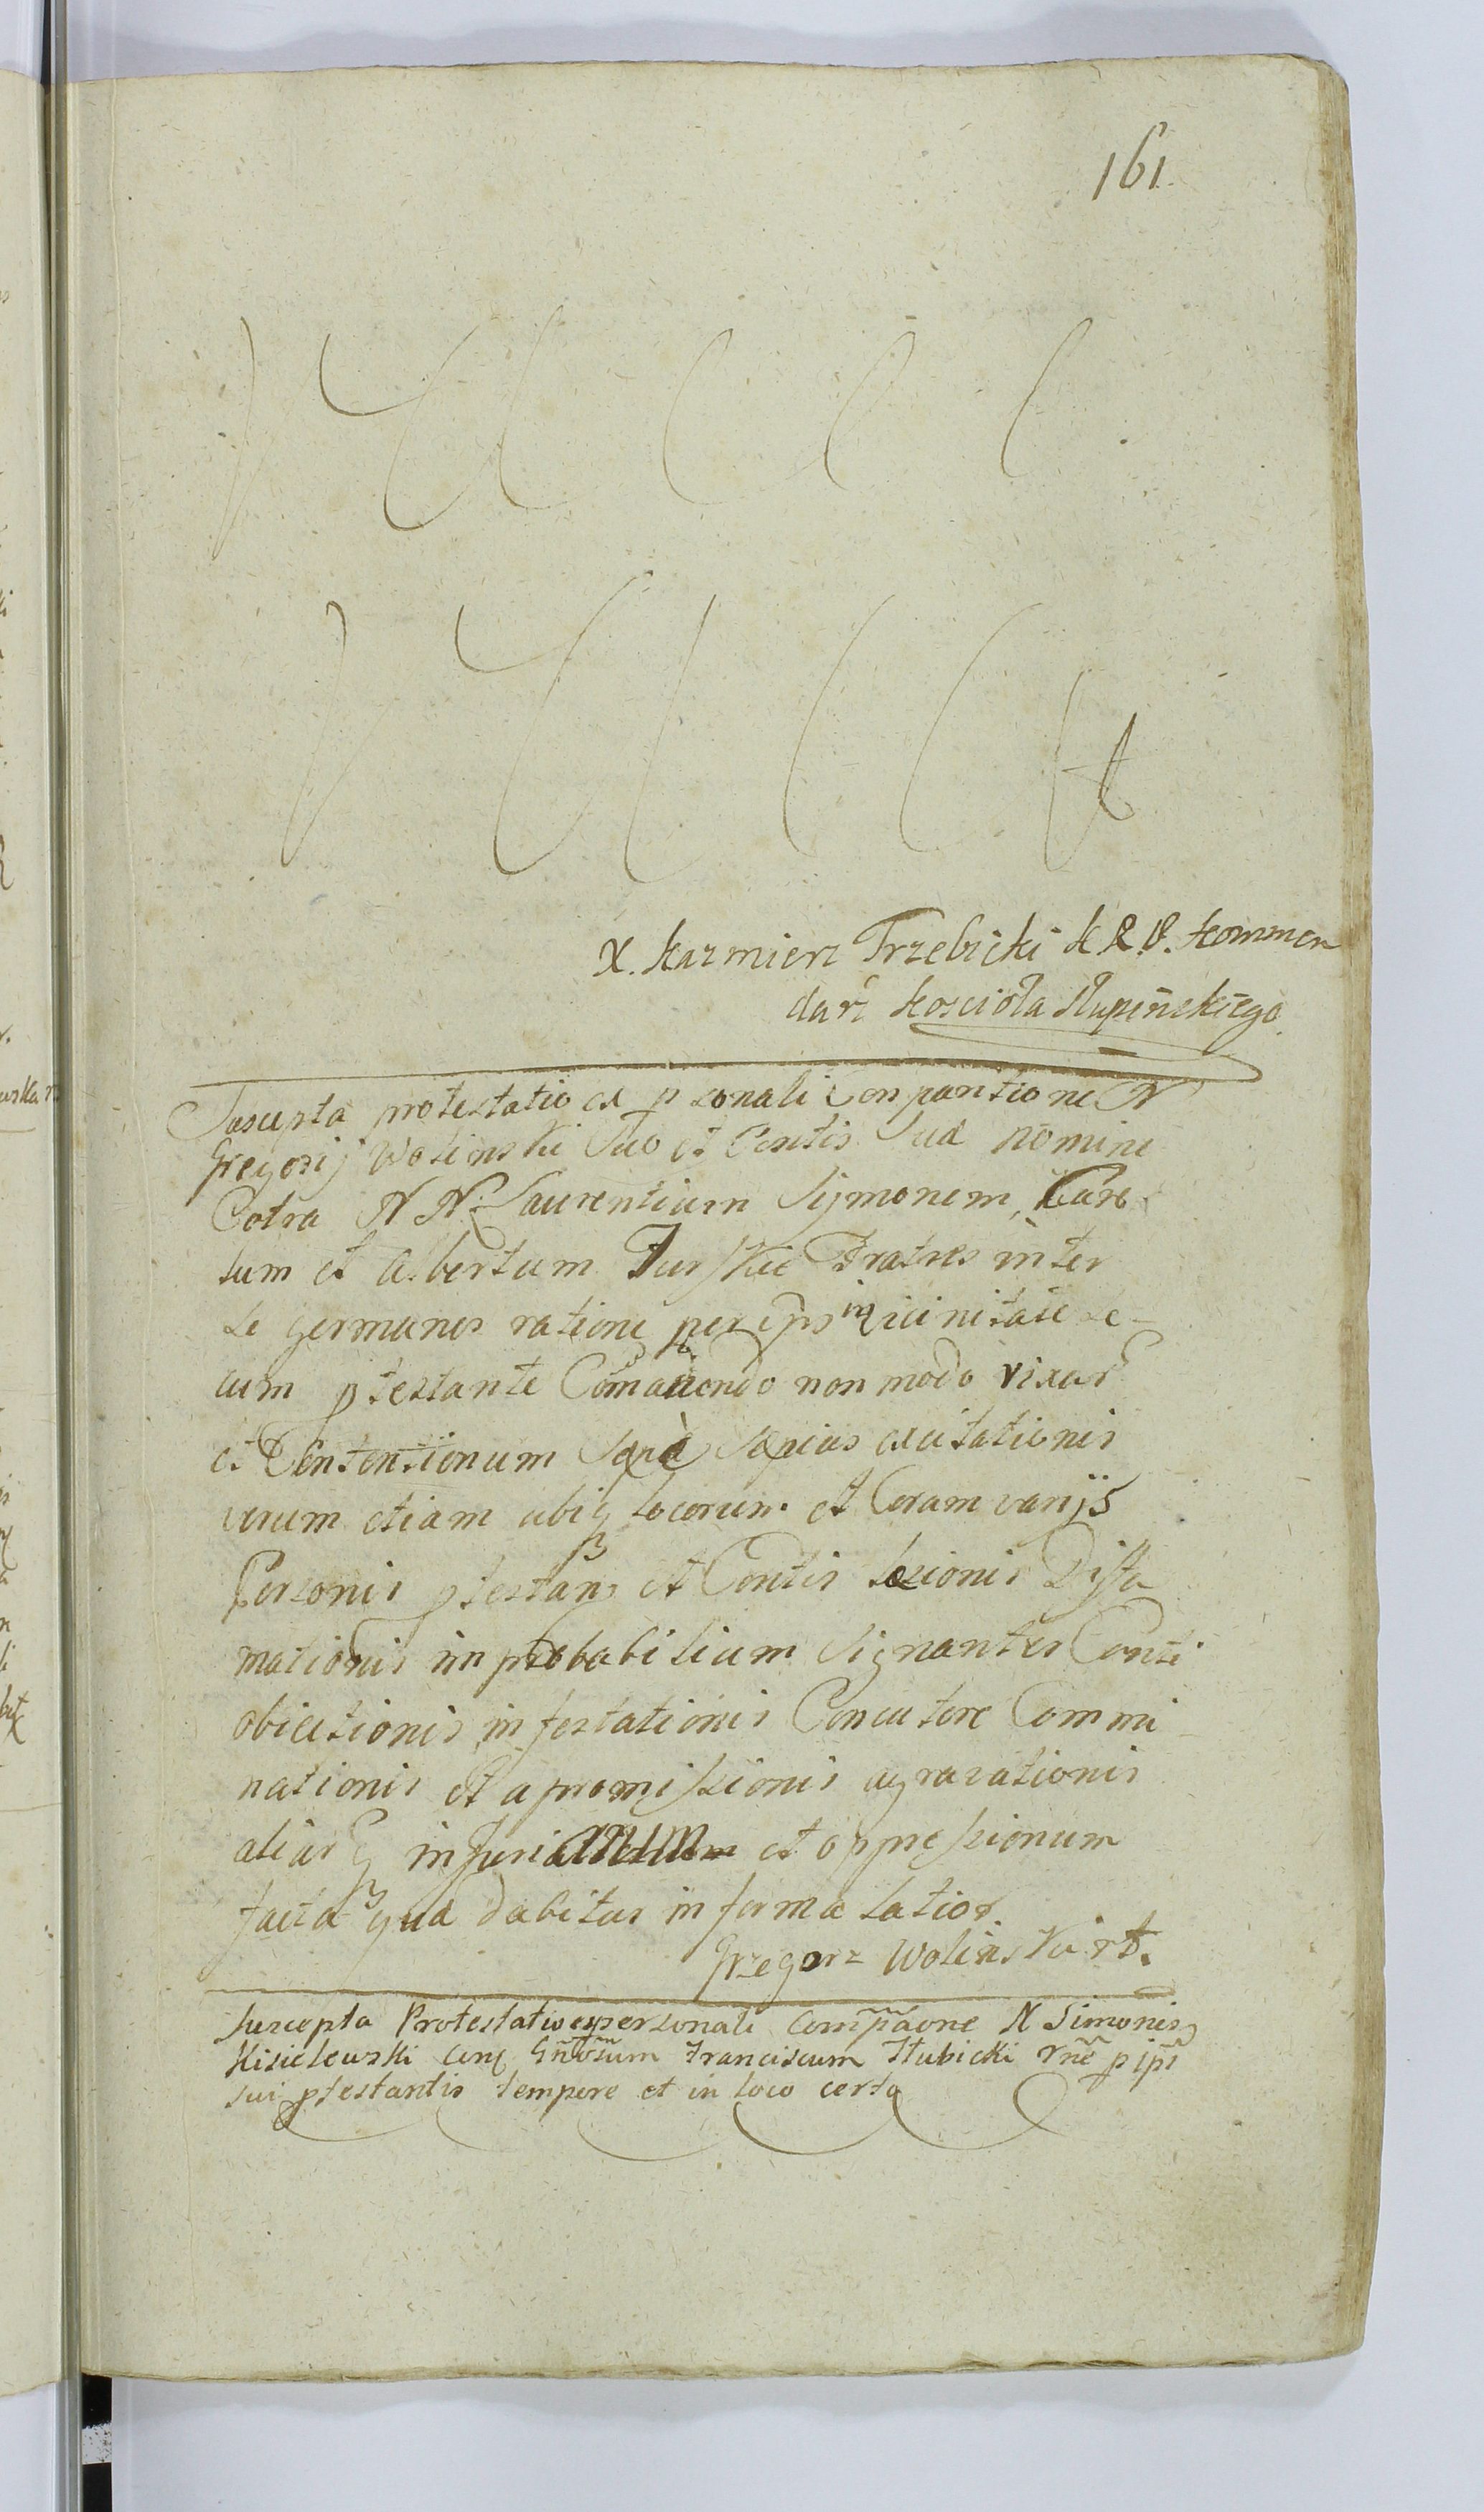 161.
X. Kazmierz Trzebicki K. R. P. Kommen
darz Kosciola Slupinskiego
Suscepta protestatio ex psonali Conparitione N
Gregorij Wolinski Suo et Contis Sua nomine
Cotra N N. Laurentium Sijmonem, Caro
lum et Albertum Turskie Fratres inter
se germanos ratione per ipsos in vicinitate se
cum ptestante Comanendo non modo rixar
et Contentionum Sæpe Sæpius excitationis
verum etiam ubiq locorum et Coram varijs
Personis ptestans et Contis læsionis Diffa
mationis improbabilium Signanter Conti
obiectionis infestationis Concutore Commi
nationis et apromissionis agravationis
aliarq injuriarum et oppressionum
facta qua dabitur in forma latior
Grzegorz Wolinski
Suscepta Protestatio ex personali Compaone N Simonis
Kisielewski Cont Gnosum Franciscum Hubicki rne p ips
sui ptestantis tempore et in loco certo